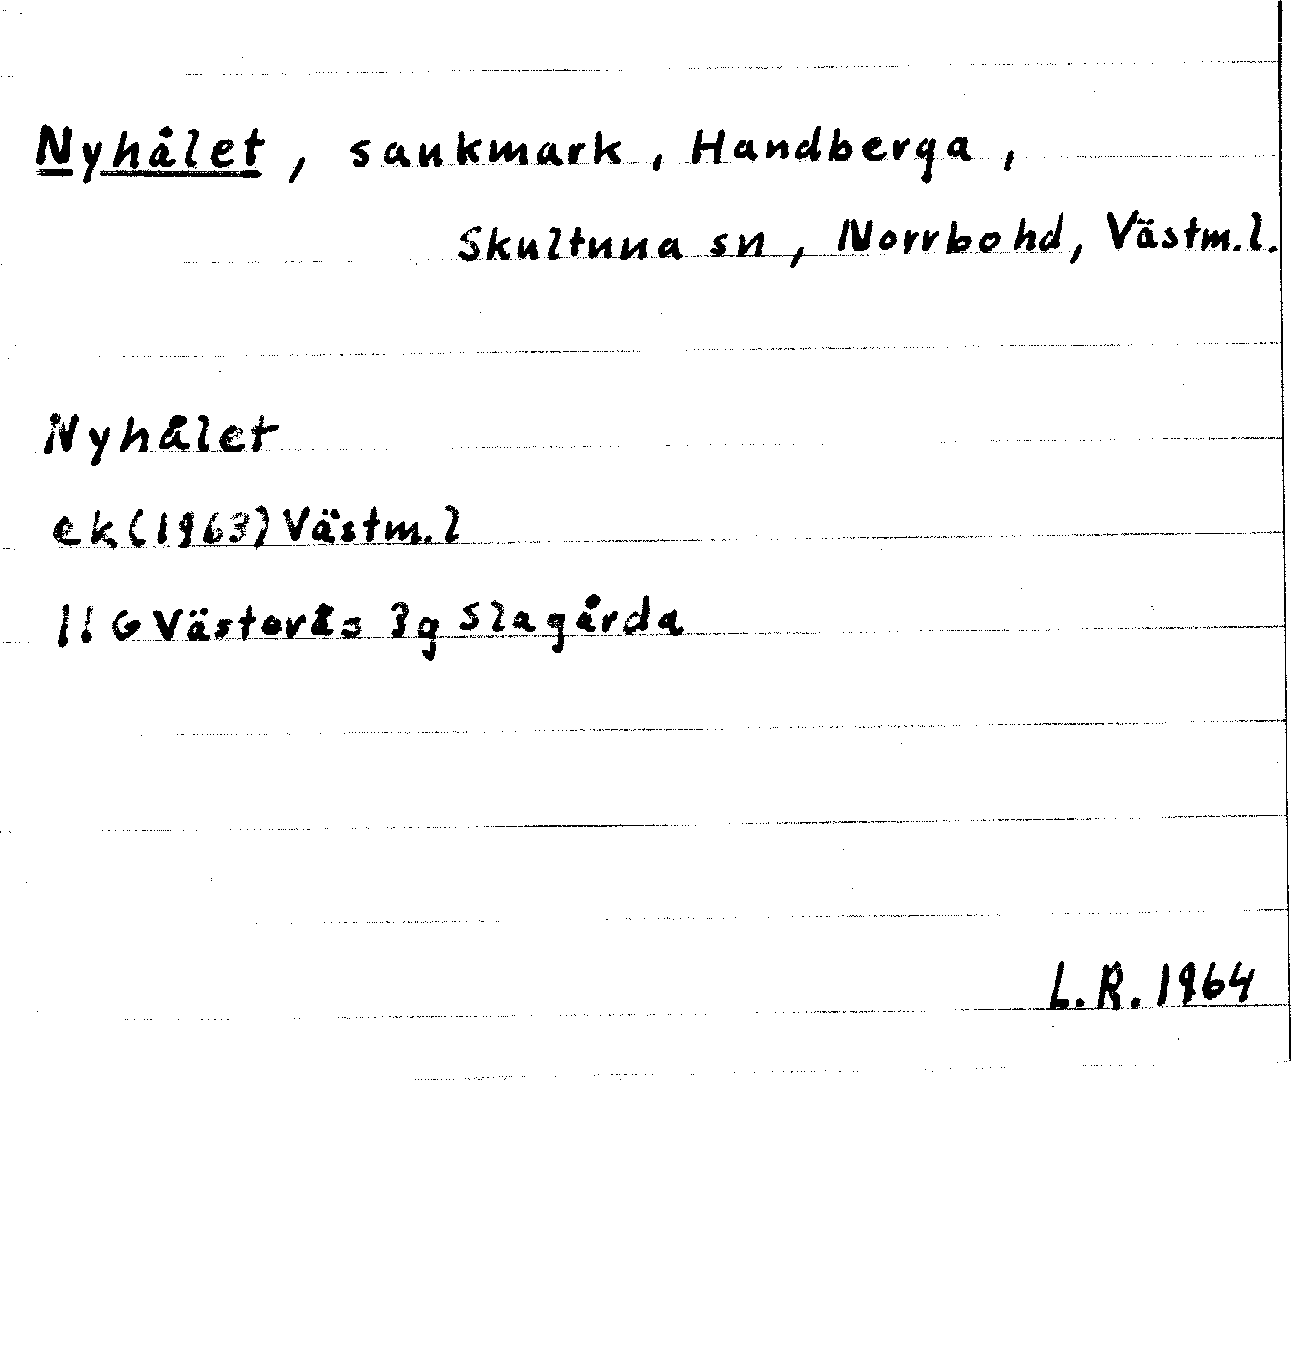 Nyhålet, sankmark, Handberga,
Skultuna sn, Norrbo hd, Västm.l.
Nyhålet
ek (1963) Västm.l
11 G Västerås 3g Slagårda
L.R. 1964